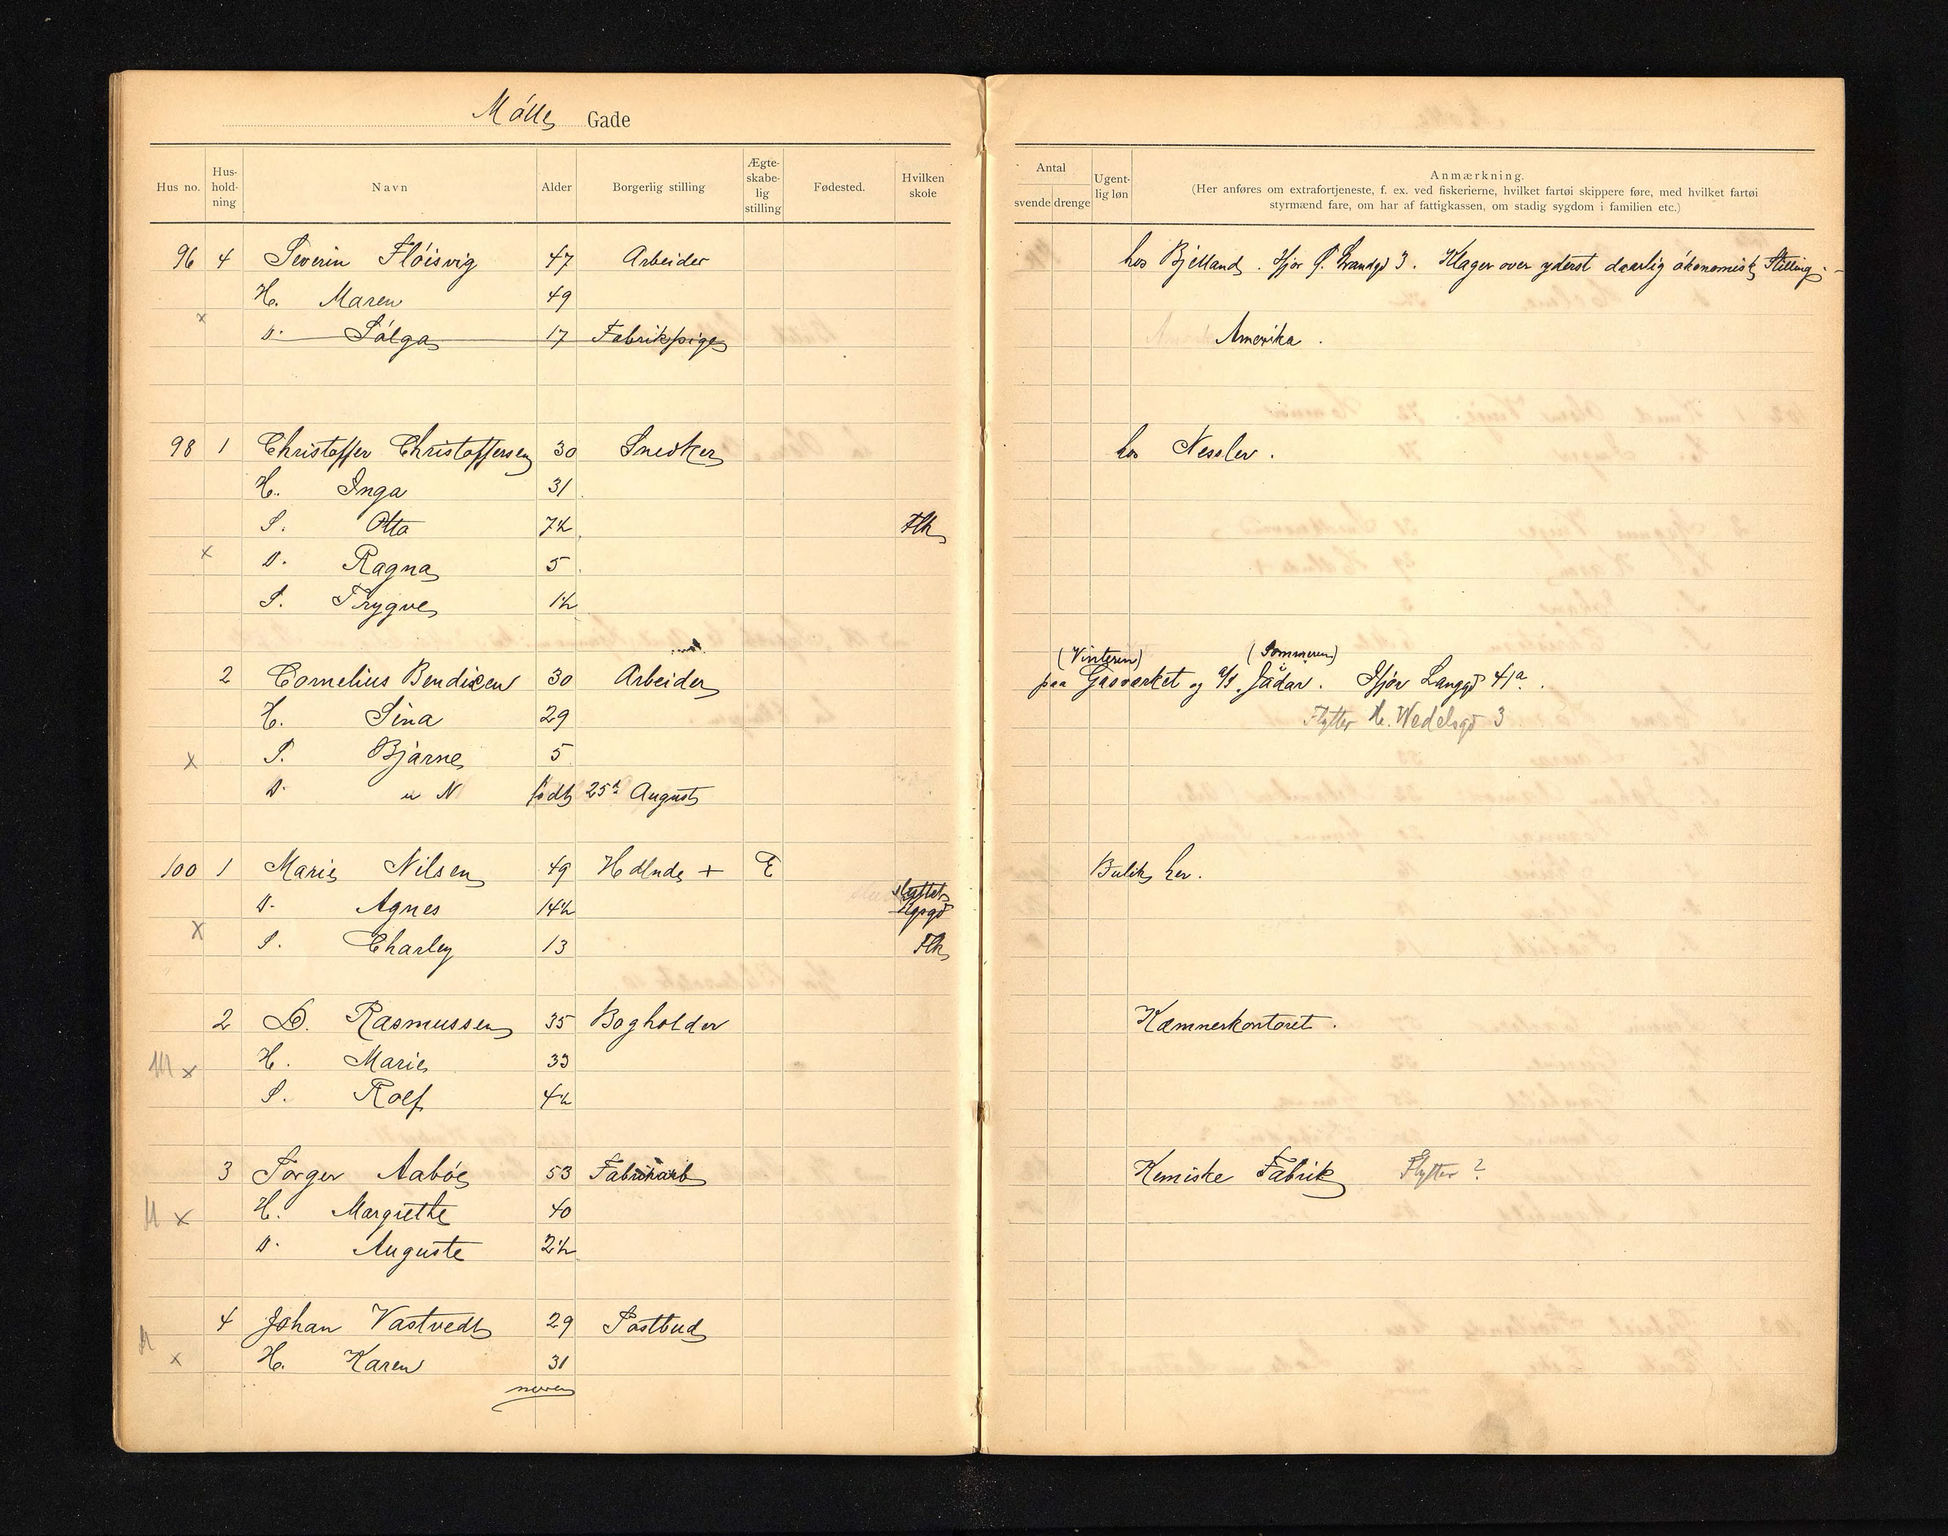 Mølle Gade
Hus no. Hus-hold-ning Navn Alder Borgerlig stilling Ægte-skabe-lig stilling Fødested. Hvilken skole
Antal svende drenge Ugent-lig løn Anmærkning.
(Her anføres om extrafortjeneste, f. ex. ved fiskerierne, hvilket fartøi skippere føre, med hvilket fartøi
styrmænd fare, om har af fattigkassen, om stadig sygdom i familien etc.)
96 4 Severin Fløisvig 47 Arbeider hos Bjelland. Ifjor Ø. Strandgd 3. Klager over yderst daarlig økonomisk Stilling.
H. Maren 49
x D. Sølga 17 Fabrikpige Amerika.
98 1 Christoffer Christoffersen 30 Snedker hos Nessler.
H. Inga 31
S. Otto 7½ Flk
x D. Ragna 5
S. Trygve 1½
(Vinteren) (Sommeren)
2 Cornelius Bendixen 30 Arbeider paa Gasværket og a/s Jådar. Ifjor Langgd 41a.
H. Sina 29 Flytter H. Wedelsgd 3
x S. Bjarne 5
D. u N født 25d August
100 1 Marie Nilsen 49 Hdlnde + E Butik her.
D. Agnes 14½ slyttet
x S. Charley 13 Flk
2 D. Rasmussen 35 Bogholder Kæmnerkontoret.
M x H. Marie 33
S. Rolf 4½
3 Torger Aabøe 53 Fabrikarb Kemiske Fabrik Flytter?
M x H. Margrethe 40
D. Auguste 2½
4 Johan Vastvedt 29 Postbud
M x H. Karen 31